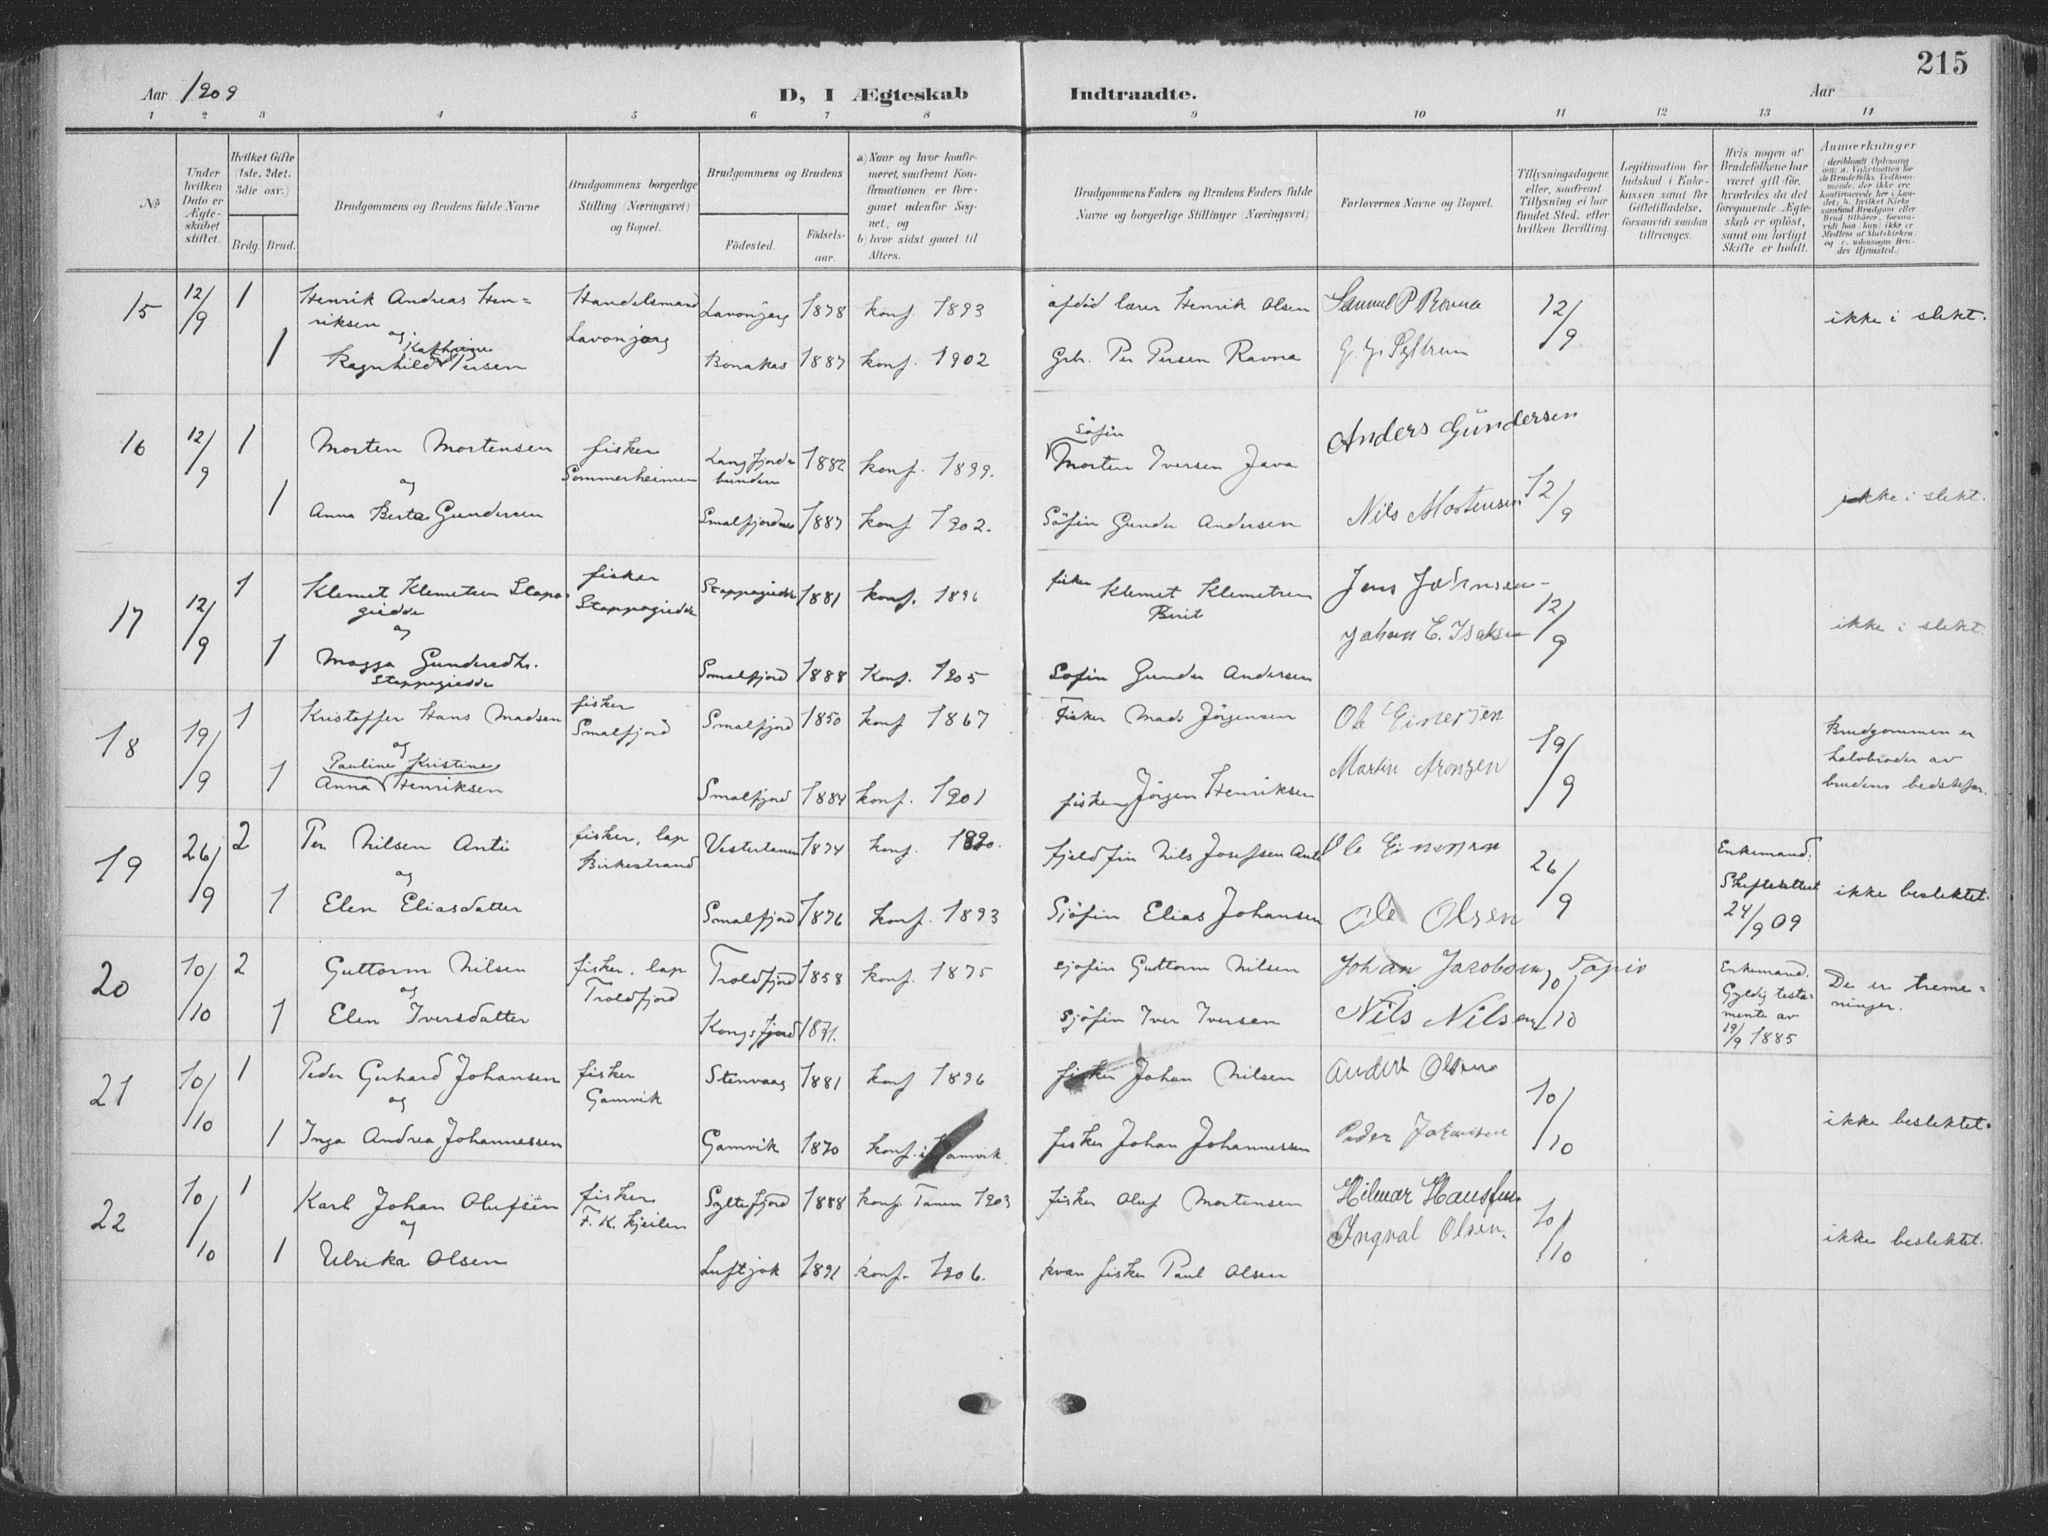 215
Aar 1909
D, I Ægteskab Indtraadte.
Aar
1 2 3 4 5 6 7 8 9 10 11 12 13 14
No
Under hvilken Dato er Ægteskabet stiftet.
Hvilket Gifte (1ste, 2det, 3die osv.)
Brdg. Brud.
Brudgommens og Brudens fulde Navne
Brudgommens borgerlige Stilling (Næringsvei) og Bopæl.
Brudgommens og Brudens
Födested. Födselsaar.
a) Naar og hvor konfirmeret, saafremt Konfirmationen er foregaaet udenfor Sognet, og
b) hvor sidst gaaet til Alters.
Brudgommens Faders og Brudens Faders fulde Navne og borgerlige Stillinger (Næringsvei)
Forlovernes Navne og Bopæl.
Tillysningsdagene eller, saafremt Tillysning ei har fundet Sted, efter hvilken Bevilling.
Legitimation for Indskud i Enkekassen samt for Giftetilladelse, forsaavidt saadan tiltrænges.
Hvis nogen af Brudefolkene har været gift før, hvorledes da det foregaaende Ægteskab er opløst, samt om lovligt Skifte er holdt.
Anmerkninger
15 12/9 1 Henrik Andreas Henriksen Handelsmand Lavonjarg Lavonjarg 1878 konf. 1893 afdöd lærer Henrik Olsen Samuel P Ravna 12/9 ikke i slekt.
og
1 Ragnhild Kathrine Persen Bonakas 1887 konf. 1902 Grb. Per Persen Ravna
16 12/9 1 Morten Mortensen fisker Sommerheimen Langfjordbunden 1882 konf. 1899. Söfin Morten Iversen Java Anders Gündersen 12/9 ikke i slekt.
og
1 Anna Berta Gundersen Smalfjordnes 1887 konf 1902. Söfin Gunder Andersen Nils Mortensen
17 12/9 1 Klemet Klemetsen Stapogiedde fisker Stappogiedde Stappogiedde 1881 konf. 1896 fisker Klemet Klemetsen Berit Jens Johansen 12/9 ikke i slekt.
og
1 Magga Gundersdtr. Stappogiedde Smalfjord 1888 Konf. 1905 Sofin Gunder Andersen Johan E. Isaksen
18 19/9 1 Kristoffer Hans Madsen fisker Smalfjord Smalfjord 1850 konf 1867 Fisker Mads Jørgensen Ole Einersen 19/9 Brudgommen er halvbroder av brudens bedstefar.
og
1 Anna Pauline Kristine Henriksen Smalfjord 1884 konf. 1901 fisker Jörgen Henriksen Martin Aronsen
19 26/9 2 Per Nilsen Anti fisker, lap Birkestrand Vestertanen 1874 konf. 1890. fjeldfin Nils Josefsen Anti Ole Einersen 26/9 Enkemand. Skifteattest 24/9 09 ikke beslektet.
og
1 Elen Eliasdatter Smalfjord 1876 konf. 1893 Sjöfin Elias Johansen Ole Olsen
20 10/10 2 Guttorm Nilsen fisker, lap Troldfjord Troldfjord 1858 konf. 1875 sjöfin Guttorm Nilsen Johan Jacobsen Tapio 10/10 Enkemand. Gyldig testamente av 19/9 1885 De er tremenninger.
og
1 Elen Iversdatter Kongsfjord 1871. Sjöfin Iver Iversen Nils Nilsen
21 10/10 1 Peder Gerhard Johansen fisker Gamvik Stenvaag 1881 konf 1896 fisker Johan Nilsen Anders Olsen 10/10 ikke beslektet.
og
1 Inga Andrea Johannessen Gamvik 1870 konf. i Gamvik. fisker Johan Johannessen Peder Johansen
22 10/10 1 Karl Johan Olufsen fisker F. K. kjeilen Syltefjord 1888 konf. Tanen 1903 fisker Oluf Mortensen Hilmar Hansen 10/10 ikke beslektet.
og
1 Ulrika Olsen Luftjok 1891 konf. 1906. kvæn fisker Paul Olsen Ingval Olsen.